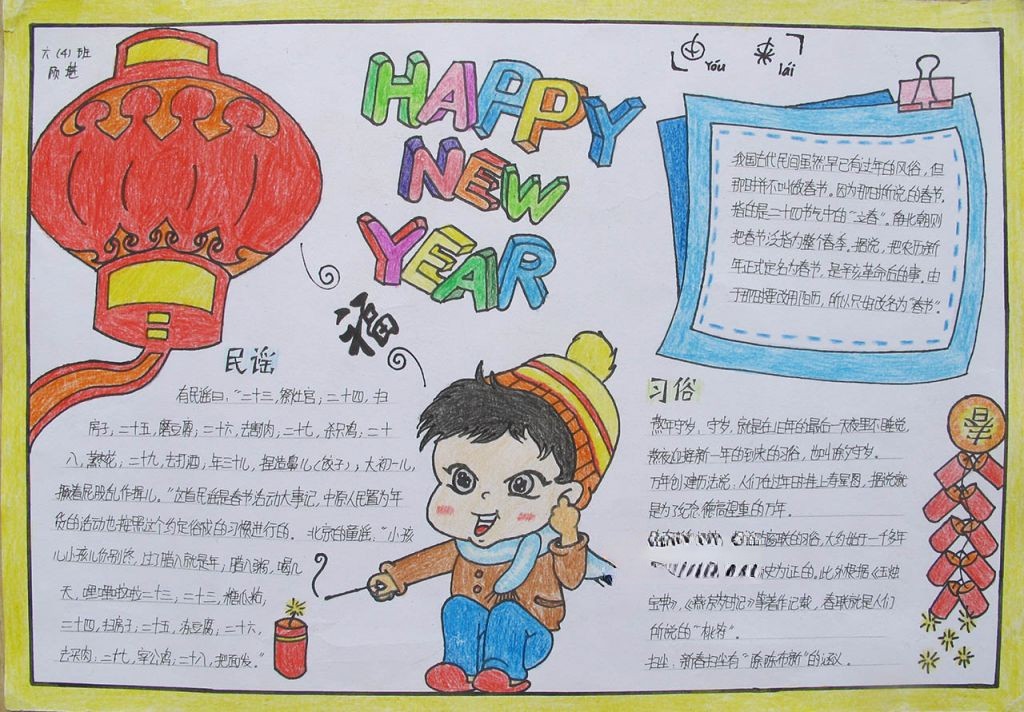 六(4)班
顾
HAPPY
NEW
YEAR
由 来
yóu lái
我国古代民间虽然早已有过年的风俗，但
那时并不叫做春节。因为那时所说的春节，
指的是二十四节气中的“立春”。南北朝则
把春节泛指为整个春季。据说，把农历新
年正式定名为春节，是辛亥革命后的事。由
于那时要改用阳历，所以只好改名为“春节”。
福
民谣
有民谣曰：“二十三，祭灶官；二十四，扫
房子；二十五，磨豆腐；二十六，去割肉；二十七，杀只鸡；二十
八，蒸枣花；二十九，去打酒，年三十儿，捏造鼻儿(饺子)；大初一儿，
撅着屁股乱作揖儿。”这首民谣是春节活动大事记，中原人民置办年
货的活动也按照这个约定俗成的习惯进行的。北京的童谣：“小孩
儿小孩儿你别馋，过了腊八就是年，腊八粥，喝几
天，哩哩啦啦二十三；二十三，糖瓜粘；
二十四，扫房子；二十五，冻豆腐；二十六，
去买肉；二十七，宰公鸡；二十八，把面发。”
习俗
熬年守岁，守岁，就是在旧年的最后一天夜里不睡觉，
熬夜迎接新一年的到来的习俗，也叫除夕守岁。
万年创建历法说，人们在过年时挂上寿星图，据说就
是为了纪念德高望重的万年。
的习俗，大约始于一千多年
为证的。此外根据《玉烛
宝典》，《燕京岁时记》等著作记载，春联就是人们
所说的“桃符”。
扫尘：新春扫尘有“除陈布新”的涵义。
春